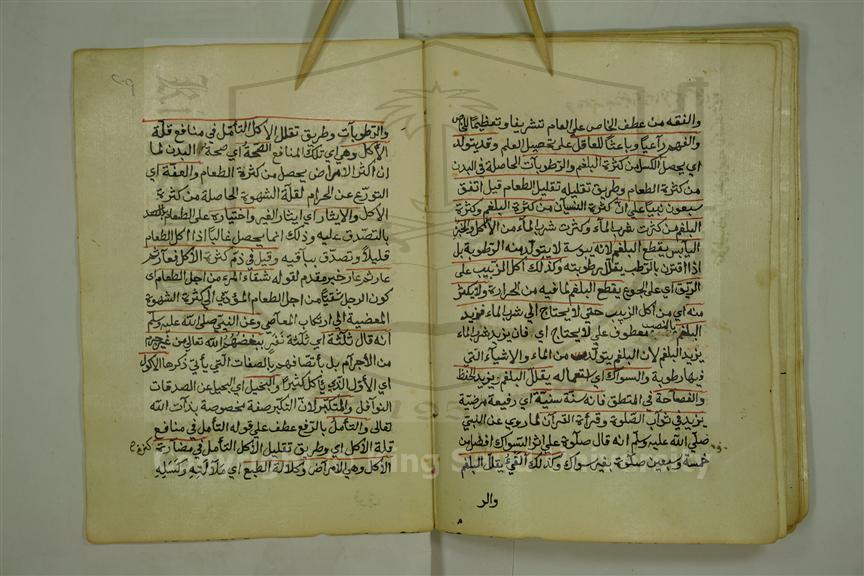 والفقه من عطف الخاص على العام تشريفا وتعظيما للخاص
والفهم راعيا وباعثا للعاقل على تحصيل العلم وقد يتولد
اى يحصل الكسل من كثرة البلغم والرطوبات الحاصلة فى البدن
من كثرة الطعام وطريق تقليله تقليل الطعام قيل اتفق
سبعون نبيا على ان كثرة النسيان من كثرة البلغم وكثرة
البلغم من كثرت شرب الماء وكثرت شرب الماء من الاكل والخبز
اليابس يقطع البلغم لانه يبوسة لا يتولد منه الرطوبة بل
اذا اقترن بالرطب يقلل رطوبته وكذلك اكل الزبيب على
الريق اى على الجوع يقطع البلغم لما فيه من الحرارة ولا يكثر
منه اى من اكل الزبيب حتى لا يحتاج الى شرب الماء فيزيد
البلغم بالنصب معطوف على لا يحتاج اى فان يزيد شرب الماء
يزيد البلغم لان البلغم يتولد من الماء والاشياء التى
فيها رطوبة والسواك اى استعماله يقلل البلغم يزيد الحفظ
والفصاحة فى المنطق فانه سنة سنية اى رفيعة مرضية
يزيد فى ثواب الصلوة وقرأة القرآن لما روى عن النبى
صلى الله عليه وسلم انه قال صلوة على اثر السواك افضل من
خمسة وسبعين صلوة بغير سواك وكذلك القئ يقلل البلغم
والر
والرطوبات وطريق تقلل الاكل التأمل فى منافع قلة
الاكل وهى اى تلك المنافع الصحة اى صحة البدن لما
ان اكثر الامراض يحصل من كثرة الطعام والعفة اى
التورع عن الحرام لقلة الشهوة الحاصلة من كثرة
الاكل والايثار اى ايثار الغير واختياره على الطعام
بالتصدق عليه وذلك انما يحصل غالبا اذا اكل الطعام
قليلا وتصدق بباقيه وقيل فى ذم كثرة الاكل فعار ثم
عار ثم عار خبر مقدم لقوله شقاء المرء من اجل الطعام اى
كون الرجل شقيا من اجل الطعام المؤدى الى كثرة الشهوة
المفضية الى ارتكاب المعاصى وعن النبى صلى الله عليه وسلم
انه قال ثلثة اى ثلثة نفر يبغضهم الله تعالى من غير جرم
من الاجرام بل باتصافهم بالصفات التى يأتى ذكرها الاكول
اى الاول الذى يأكل كثيرا والبخيل اى البخيل عن الصدقات
النوافل والمتكبر لان التكبر صفة مخصوصة بذات الله
تعالى والتأمل بالرفع عطف على قوله التأمل فى منافع
قلة الاكل اى وطريق تقليل الاكل التأمل فى مضار كثرة
الاكل وهى الامراض وكلالة الطبع اى ملالته وكسله